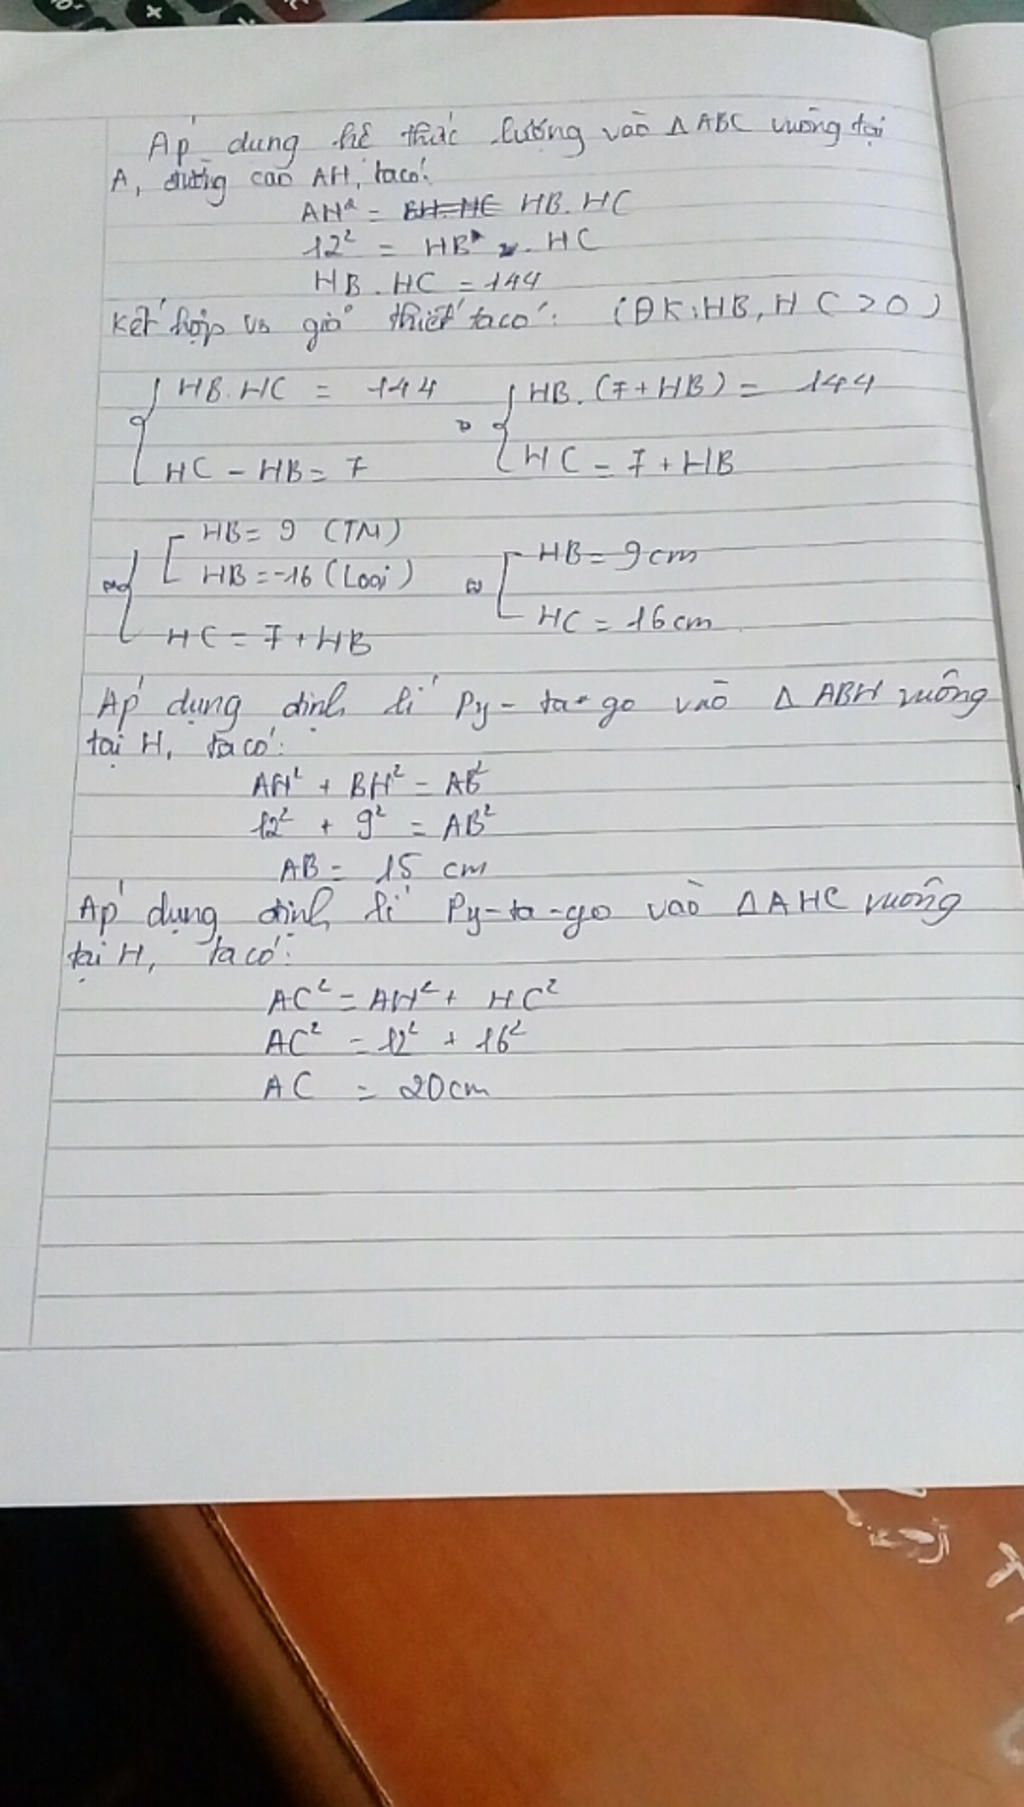 Áp dung hê thức lượng vào Δ ABC vuông tại
A, đường cao AH, ta có:
AH² = BH.HC HB.HC
12² = HB . HC
HB . HC = 144
Kết hợp vs giả thiết ta có: (ĐK: HB, HC > 0)
HB.HC = 144 HB. (7 + HB) = 144
HC - HB = 7 HC = 7 + HB
HB = 9 (TM)
HB = -16 (Loại)
HC = 7 + HB
HB = 9cm
HC = 16cm
Áp dụng định lí Py-ta-go vào Δ ABH vuông
tại H, ta có:
AH² + BH² = AB²
12² + 9² = AB²
AB = 15 cm
Áp dụng định lí Py-ta-go vào ΔAHC vuông
tại H, ta có:
AC² = AH² + HC²
AC² = 12² + 16²
AC = 20cm